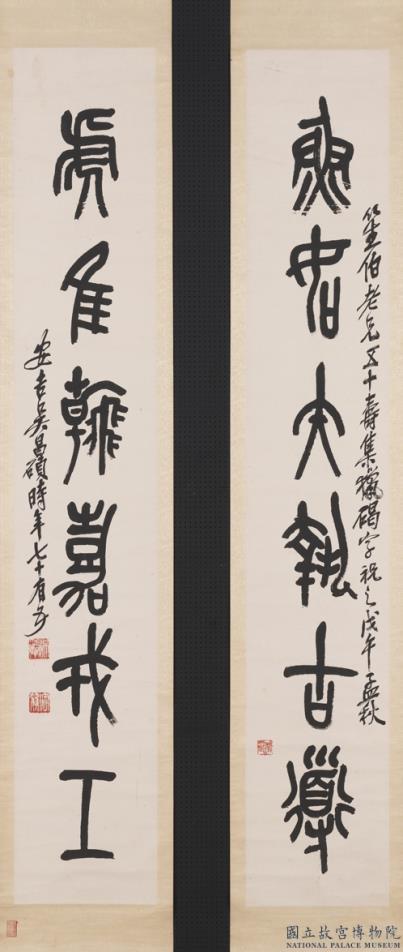 如執古導
笙伯老兄五十壽集獵碣字祝之戊午孟秋
隹翰嘉戎工
安吉吳昌碩時年七十有五
國立故宮博物院
NATIONAL PALACE MUSEUM